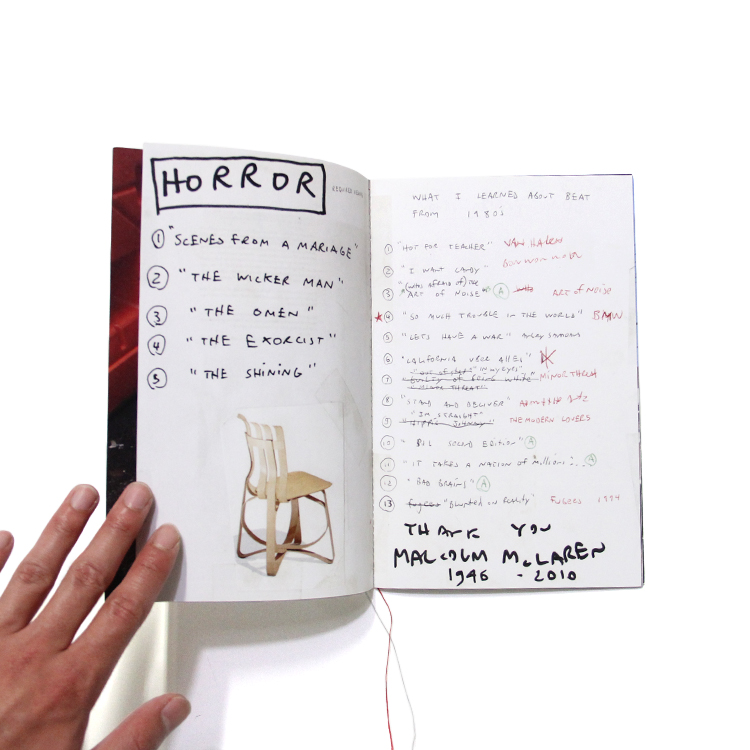 HORROR
① "SCENES FROM A MARIAGE"
② "THE WICKER MAN"
③ "THE OMEN"
④ "THE EXORCIST"
⑤ "THE SHINING"
WHAT I LEARNED ABOUT BEAT
FROM 1980's
① "HOT FOR TEACHER" VAN HALEN
② "I WANT CANDY" BOW WOW WOW
"(WHO'S AFRAID OF) THE
③ "ART OF NOISE" A ART OF NOISE
★④ "SO MUCH TROUBLE IN THE WORLD" BMW
⑤ "LETS HAVE A WAR"
⑥ "CALIFORNIA UBER ALLES" DK
"OUT OF STEP" "IN MY EYES"
⑦ "GUILTY OF BEING WHITE" MINOR THREAT
"MINOR THREAT"
⑧ "STAND AND DELIVER"
"I'M STRAIGHT"
⑨ "HIPPIE JOHNNY" THE MODERN LOVERS
⑩ "PIL SECOND EDITION" A
⑪ "IT TAKES A NATION OF MILLIONS... A
⑫ "BAD BRAINS" A
⑬ FUGEES "BLUNTED ON REALITY" FUGEES 1994
THANK YOU
MALCOLM McLAREN
1946 - 2010